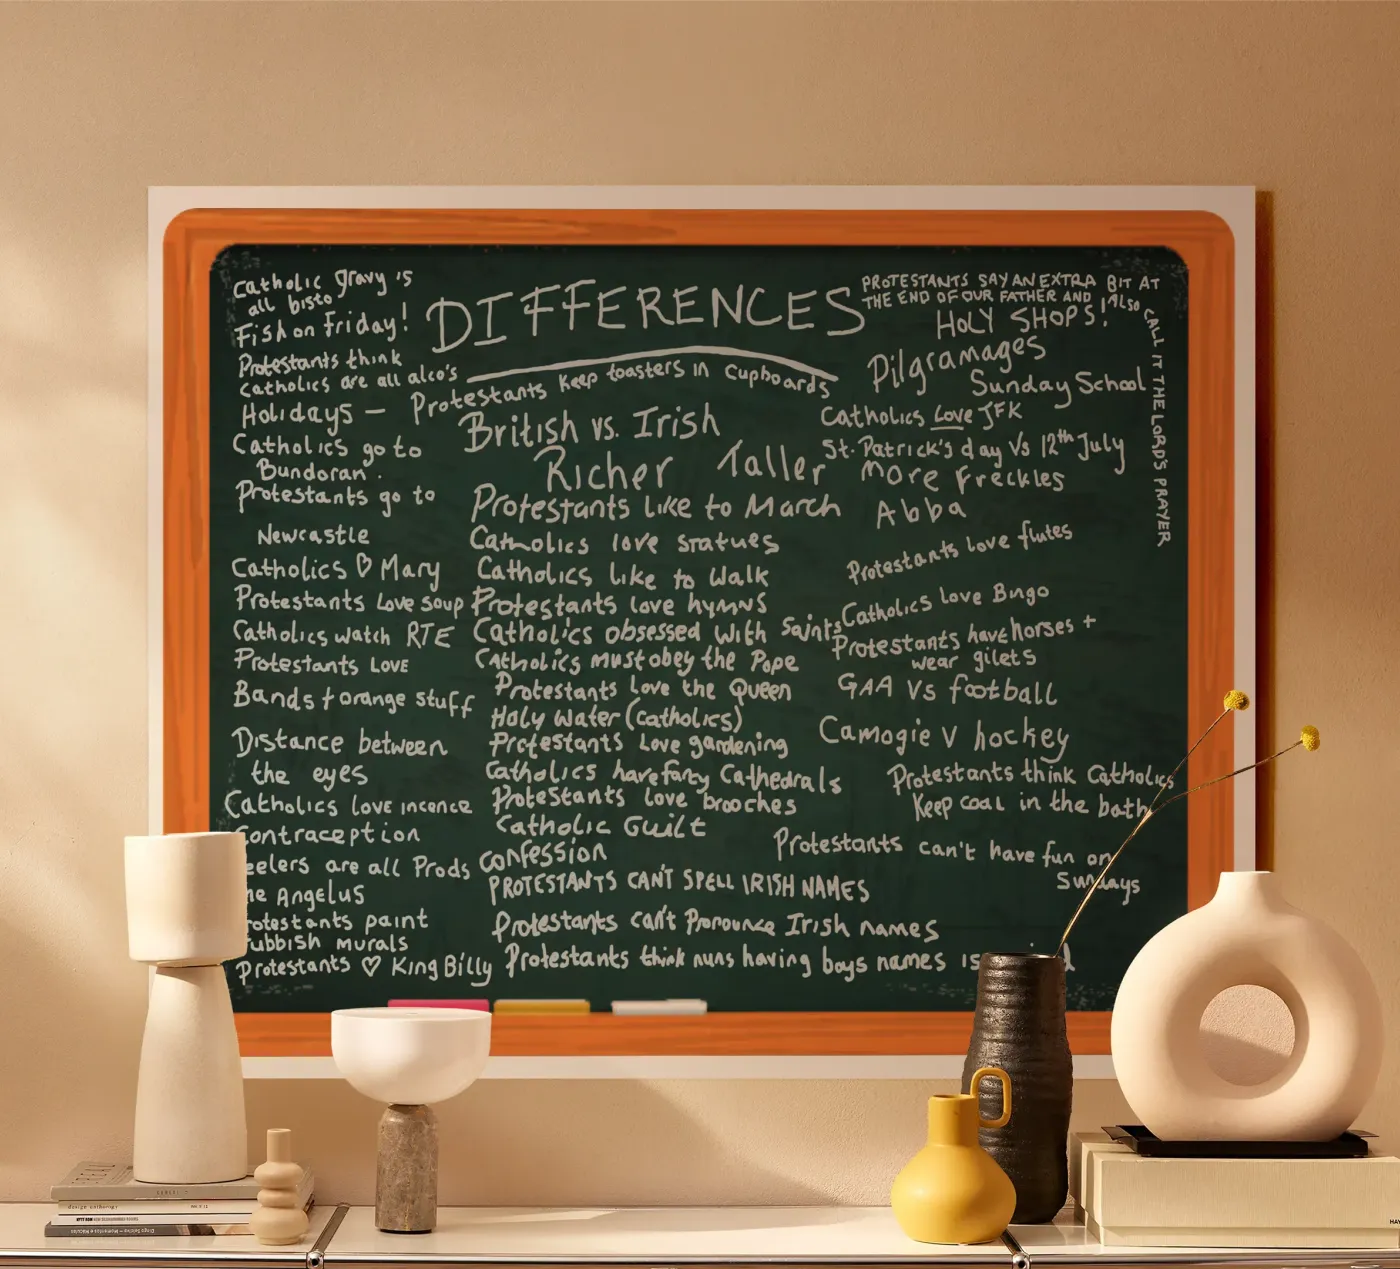 DIFFERENCES
Catholic gravy is
all bisto
Fish on Friday!
Protestants think
Catholics are all alco's
Holidays —
Catholics go to
Bundoran.
Protestants go to
Newcastle
Catholics ♡ Mary
Protestants Love soup
Catholics watch RTE
Protestants LOVE
Bands + orange stuff
Distance between
the eyes
Catholics love incence
Contraception
eelers are all Prods
he Angelus
otestants paint
ubbish murals
Protestants ♡ King Billy
Protestants keep toasters in cupboards
British vs. Irish
Richer Taller
Protestants like to March
Catholics love statues
Catholics like to walk
Protestants love hymns
Catholics obsessed with saints
Catholics must obey the Pope
Protestants love the Queen
Holy water (catholics)
Protestants Love gardening
Catholics have fancy Cathedrals
Protestants love brooches
Catholic Guilt
Confession
PROTESTANTS CAN'T SPELL IRISH NAMES
Protestants can't Pronounce Irish names
Protestants think nuns having boys names is
PROTESTANTS SAY AN EXTRA BIT AT
THE END OF OUR FATHER AND ! Also
CALL IT THE LORDS PRAYER
HOLY SHOPS!
Pilgramages
Sunday School
Catholics Love JFK
St. Patrick's day Vs 12th July
More Freckles
Abba
Protestants love flutes
Catholics love Bingo
Protestants have horses +
wear gilets
GAA Vs football
Camogie V hockey
Protestants think Catholics
Keep coal in the bath
Protestants can't have fun on
Sundays